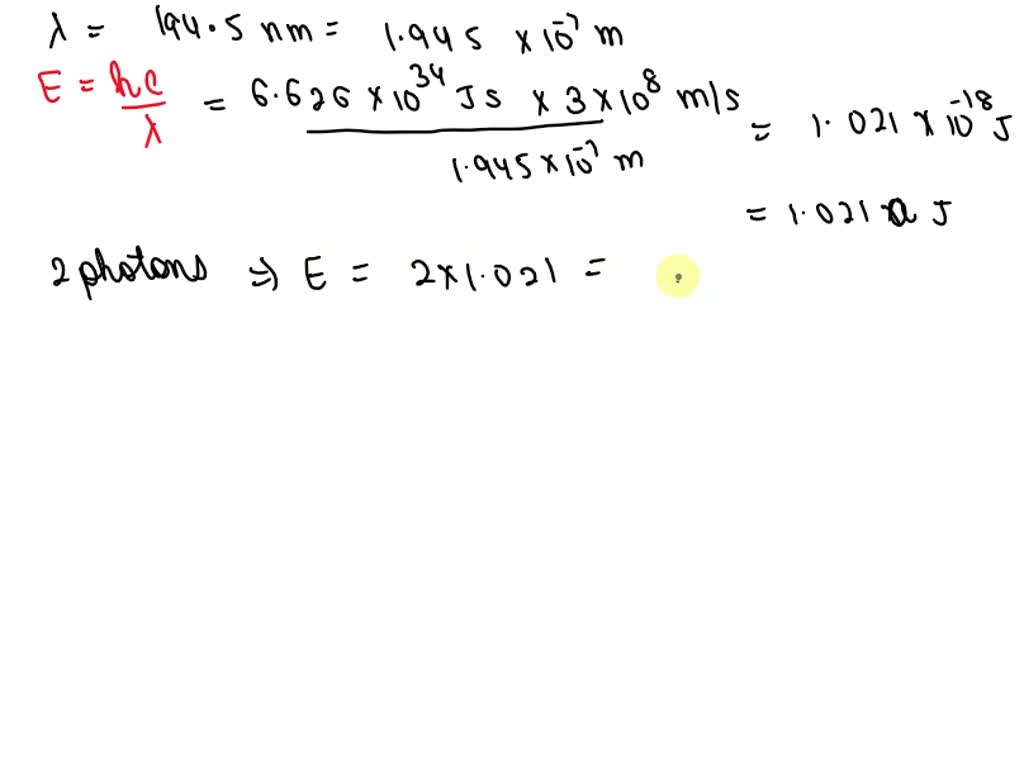 λ = 194.5 nm = 1.945 × 10⁻⁷ m
E = hc/λ = 6.626 × 10³⁴ Js × 3 × 10⁸ m/s / 1.945 × 10⁻⁷ m = 1.021 × 10⁻¹⁸ J
= 1.021 a J
2 photons ⇒ E = 2 × 1.021 =